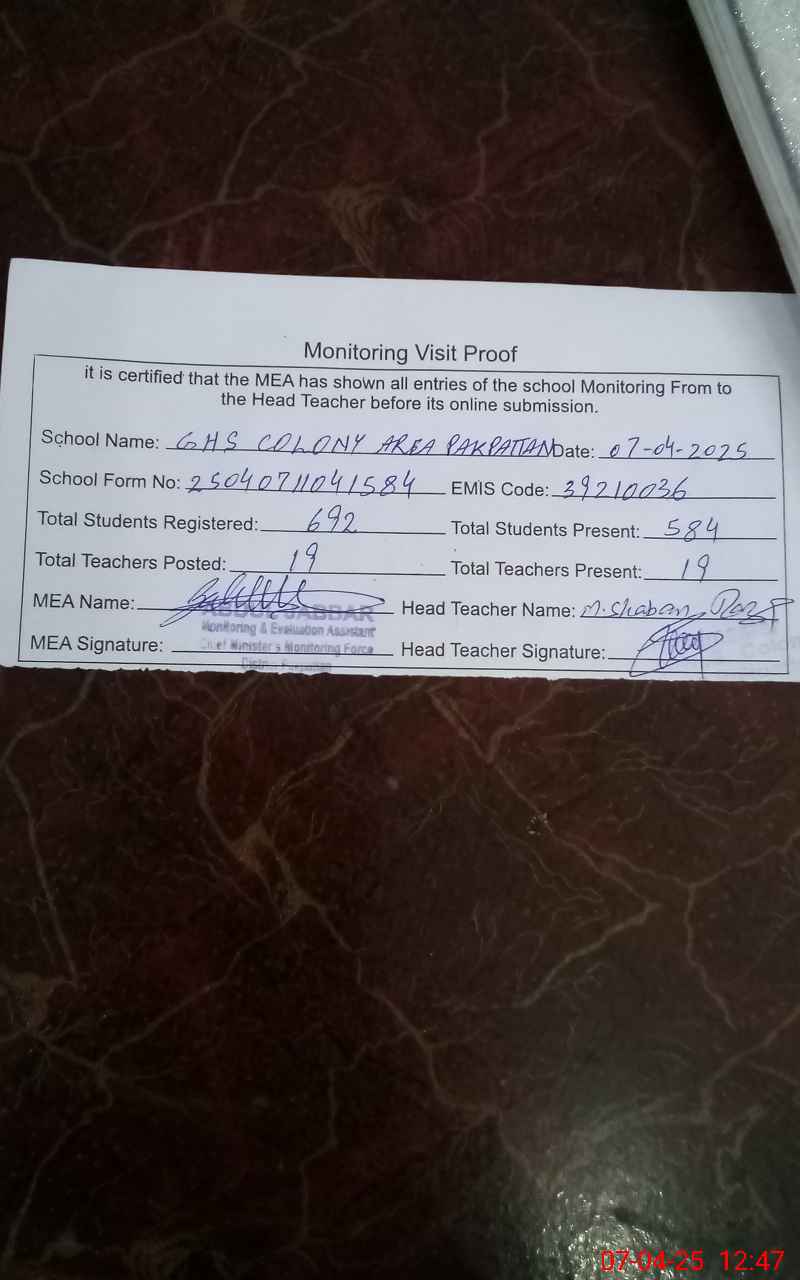 Monitoring Visit Proof
it is certified that the MEA has shown all entries of the school Monitoring From to
the Head Teacher before its online submission.
School Name: GHS COLONY AREA PAKPATTAN Date: 07-04-2025
School Form No: 25040711041584 EMIS Code: 39210036
Total Students Registered: 692 Total Students Present: 584
Total Teachers Posted: 19 Total Teachers Present: 19
MEA Name: ABDUL JABBAR Head Teacher Name: M. Shaban
Monitoring & Evaluation Assistant
MEA Signature: Chief Minister's Monitoring Force Head Teacher Signature:
District Pakpattan
07-04-25 12:47